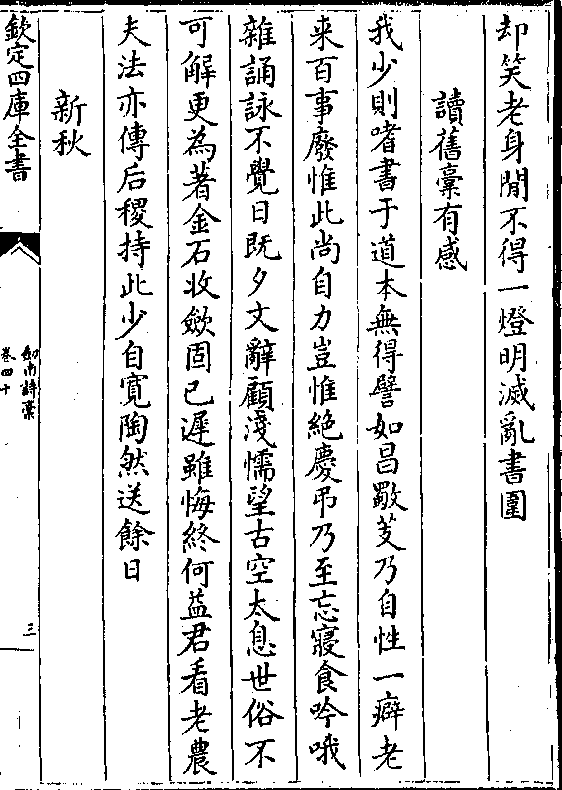 却笑老身閒不得一燈明滅亂書圍
讀舊稾有感
我少則嗜書于道本無得譬如昌歜芰乃自性一癖老
来百事廢惟此尚自力豈惟絶慶弔乃至忘寢食吟哦
雜誦詠不覺日既夕文辭顧淺懦望古空太息世俗不
可解更為著金石收斂固已遲雖悔終何益君看老農
夫法亦傳后稷持此少自寛陶然送餘日
新秋
欽定四庫全書
劎南詩稾
卷四十
三